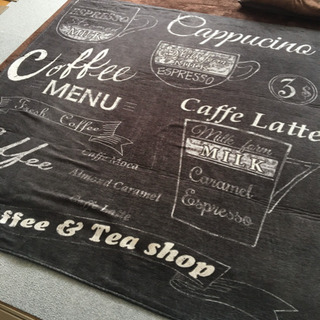 ESPRESSO
MILK
ESPRESSO
Cappucino
3$
Coffee
MENU
Fresh Coffee
Caffe Latte
Milk foam
MILK
Caramel
Espresso
Caffe Moca
Almond Caramel
Caffe Latte
ffee & Tea shop